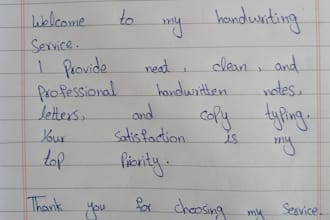 Welcome to my handwriting
Service.
I Provide neat, clean, and
professional handwritten notes,
letters, and copy typing.
Your Satisfaction is my
top Priority.
Thank you for choosing my Service